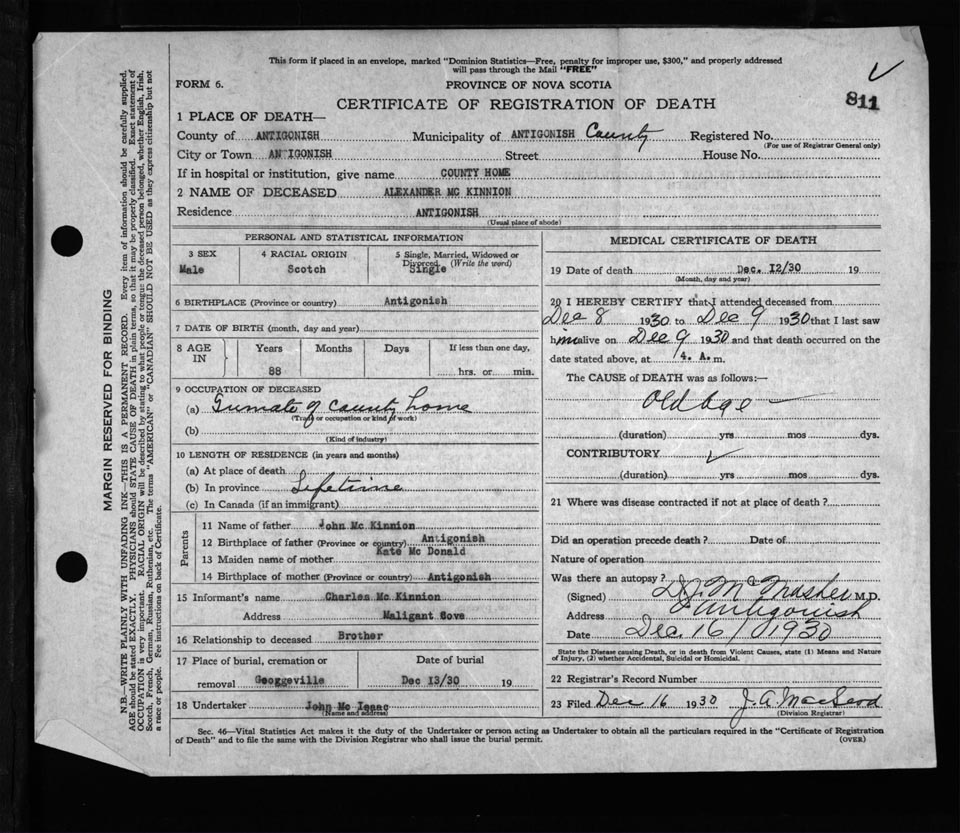 This form if placed in an envelope, marked "Dominion Statistics—Free, penalty for improper use, $300," and properly addressed
will pass through the Mail "FREE"
FORM 6.
PROVINCE OF NOVA SCOTIA
811
CERTIFICATE OF REGISTRATION OF DEATH
1 PLACE OF DEATH—
County of ANTIGONISH Municipality of ANTIGONISH County Registered No.
(For use of Registrar General only)
City or Town ANTIGONISH Street House No.
If in hospital or institution, give name COUNTY HOME
2 NAME OF DECEASED ALEXANDER MC KINNION
Residence ANTIGONISH
(Usual place of abode)
PERSONAL AND STATISTICAL INFORMATION
3 SEX 4 RACIAL ORIGIN 5 Single, Married, Widowed or
Divorced (Write the word)
Male Scotch Single
6 BIRTHPLACE (Province or country) Antigonish
7 DATE OF BIRTH (month, day and year)
8 AGE IN Years Months Days If less than one day,
88 hrs. or min.
9 OCCUPATION OF DECEASED
(a) Inmate of County Home
(Trade or occupation or kind of work)
(b)
(Kind of industry)
10 LENGTH OF RESIDENCE (in years and months)
(a) At place of death
(b) In province Lifetime
(c) In Canada (if an immigrant)
Parents
11 Name of father John Mc Kinnion
12 Birthplace of father (Province or country) Antigonish
13 Maiden name of mother Kate Mc Donald
14 Birthplace of mother (Province or country) Antigonish
15 Informant's name Charles Mc Kinnion
Address Maligant Cove
16 Relationship to deceased Brother
17 Place of burial, cremation or Date of burial
removal Georgeville Dec 13/30 19
18 Undertaker John Mc Isaac
(Name and address)
MEDICAL CERTIFICATE OF DEATH
19 Date of death Dec. 12/30 19
(Month, day and year)
20 I HEREBY CERTIFY that I attended deceased from
Dec 8 1930 to Dec 9 1930 that I last saw
him alive on Dec 9 1930 and that death occurred on the
date stated above, at 4. A. m.
The CAUSE of DEATH was as follows:—
Old Age
(duration) yrs mos dys.
CONTRIBUTORY
(duration) yrs mos dys.
21 Where was disease contracted if not at place of death?
Did an operation precede death? Date of
Nature of operation
Was there an autopsy?
(Signed) M.D.
Address Antigonish
Date Dec. 16 / 1930
State the Disease causing Death, or in death from Violent Causes, state (1) Means and Nature
of Injury, (2) whether Accidental, Suicidal or Homicidal.
22 Registrar's Record Number
23 Filed Dec 16 1930 J. A. MacLeod
(Division Registrar)
Sec. 46—Vital Statistics Act makes it the duty of the Undertaker or person acting as Undertaker to obtain all the particulars required in the "Certificate of Registration
of Death" and to file the same with the Division Registrar who shall issue the burial permit.
(OVER)
MARGIN RESERVED FOR BINDING
N.B.—WRITE PLAINLY WITH UNFADING INK—THIS IS A PERMANENT RECORD. Every item of information should be carefully supplied.
AGE should be stated EXACTLY. PHYSICIANS should STATE CAUSE OF DEATH in plain terms, so that it may be properly classified. Exact statement of
OCCUPATION is very important. RACIAL ORIGIN will be described by stating to what people or tongue the deceased person belonged, whether English, Irish,
Scotch, French, German, Russian, Ruthenian, etc. The terms "AMERICAN" or "CANADIAN" SHOULD NOT BE USED as they express citizenship but not
a race or people. See instructions on back of Certificate.